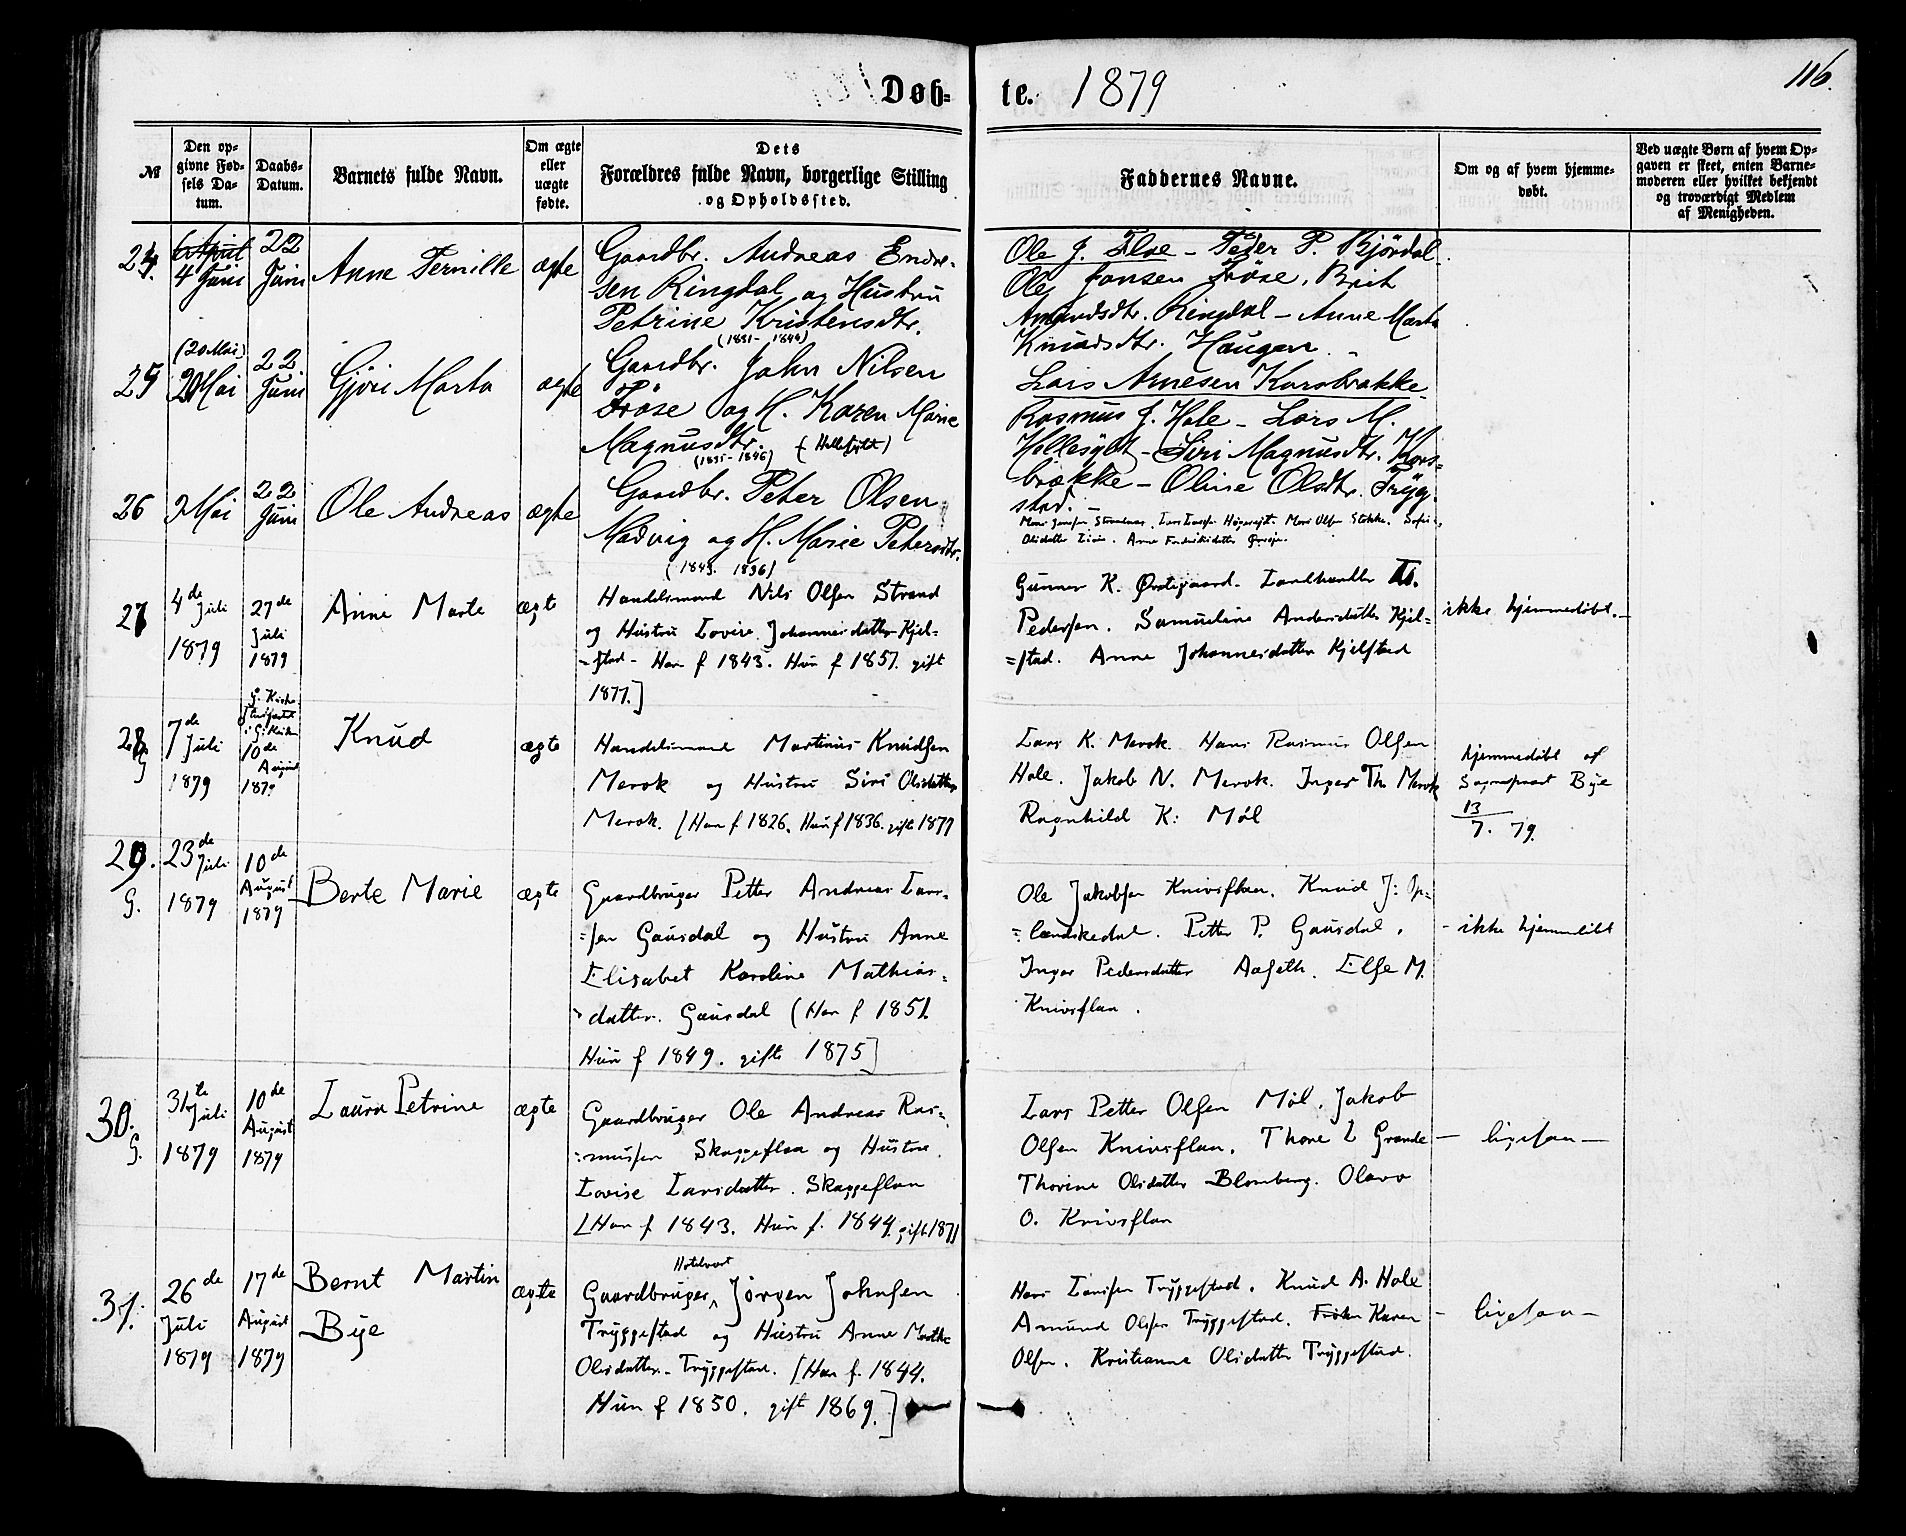 Døb-
te. 1879
116.
№
Den op-
givne Fød-
sels Da-
tum.
Daabs-
Datum.
Barnets fulde Navn.
Om ægte
eller
uægte
fødte.
Dets
Forældres fulde Navn, borgerlige Stilling
og Opholdssted.
Faddernes Navne.
Om og af hvem hjemme-
døbt.
Ved uægte Børn af hvem Op-
gaven er skeet, enten Barne-
moderen eller hvilket bekjendt
og troværdigt Medlem
af Menigheden.
24.
4 Juni
22
Juni
Anne Pernille
ægte
Gaardbr. Andreas Endre-
sen Ringdal og Hustru
Petrine Kristensdtr.
Ole J. - Peder P. Bjørdal
Ole Jonsen Frøse. Brit
Amundsdtr. Ringdal - Anne Marta
Knudsdtr. Haugen
25
(20 Mai)
20 Mai
22
Juni
Gjøri Marta
ægte
Gaardbr. John Nilsen
Frøse og H. Karen Marie
Magnusdtr. (Hellesylt)
Lars Arnesen Korsbrække
Rasmus J. Hole - Lars M.
Hellesylt - Siri Magnusdtr. Kors-
brække - Oline Olsdtr. Tryg-
stad.
26
9 Mai
22
Juni
Ole Andreas
ægte
Gaardbr. Peter Olsen
Madvig og H. Marie Petersdtr.
27
4de
Juli
1879
27de
Juli
1879
Anne Marte
ægte
Handelsmand Nils Olsen Strand
og Hustru Lovise Johannesdatter Kjel-
=stad - Han f 1843. Hun f 1851. gift
1877.]
Gunner K. Østigaard. Landhandler
Pedersen. Samueline Andersdatter Kjel=
=stad. Anne Johannesdatter Kjelstad
ikke hjemmedøbt.
28
G
7de
Juli
1879
10de
August
1879
Knud
ægte
Handelsmand Martinus Knudsen
Merok og Hustru Siri Olsdatter
Merok. [Han f 1826. Hun f 1836. gift 1877
Lars K. Merok. Hans Rasmus Olsen
Hole. Jakob N. Merok. Inger Th. Merok
Ragnhild K: Møl
hjemmedøbt af
Sognepræst Bye
13
7. 79.
29.
G.
23de
Juli
1879
10de
August
1879
Berte Marie
ægte
Gaardbruger Petter Andreas Lars-
=sen Gausdal og Hustru Anne
Elisabet Karoline Mathias-
=datter. Gausdal (Han f 1851.
Hun f 1849. gift 1875]
Ole Jakobsen Knivsflaa. Knud J: Op=
=lændskedal. Petter P. Gausdal.
Inger Pedersdatter Aaseth. Else M.
Knivsflaa.
- ikke hjemmedøbt
30.
G.
31te
Juli
1879
10de
August
1879
Laura Petrine
ægte
Gaardbruger Ole Andreas Ras-
=mussen Skaggeflaa og Hustru
Lovise Larsdatter. Skaggeflaa
[Han f 1843. Hun f. 1844. gift 1871
Lars Petter Olsen Møl. Jakob
Olsen Knivsflaa. Thore L Grande
Thorine Olsdatter Blomberg. Olava
O. Knivsflaa
- ligesaa -
31.
26de
Juli
1879
17de
August
1879
Bernt Martin
Bye
ægte
Hotelvært
Gaardbruger, Jørgen Johnsen
Tryggestad og Hustru Anne Marthe
Olsdatter. Tryggestad. [Han f. 1844.
Hun f 1850. gift 1869.]
Hans Larssen Tryggestad. Knud A. Hole
Amund Olsen Tryggestad. Frøken Karen
Olsen. Kristianne Olsdatter Tryggestad.
- ligesaa -